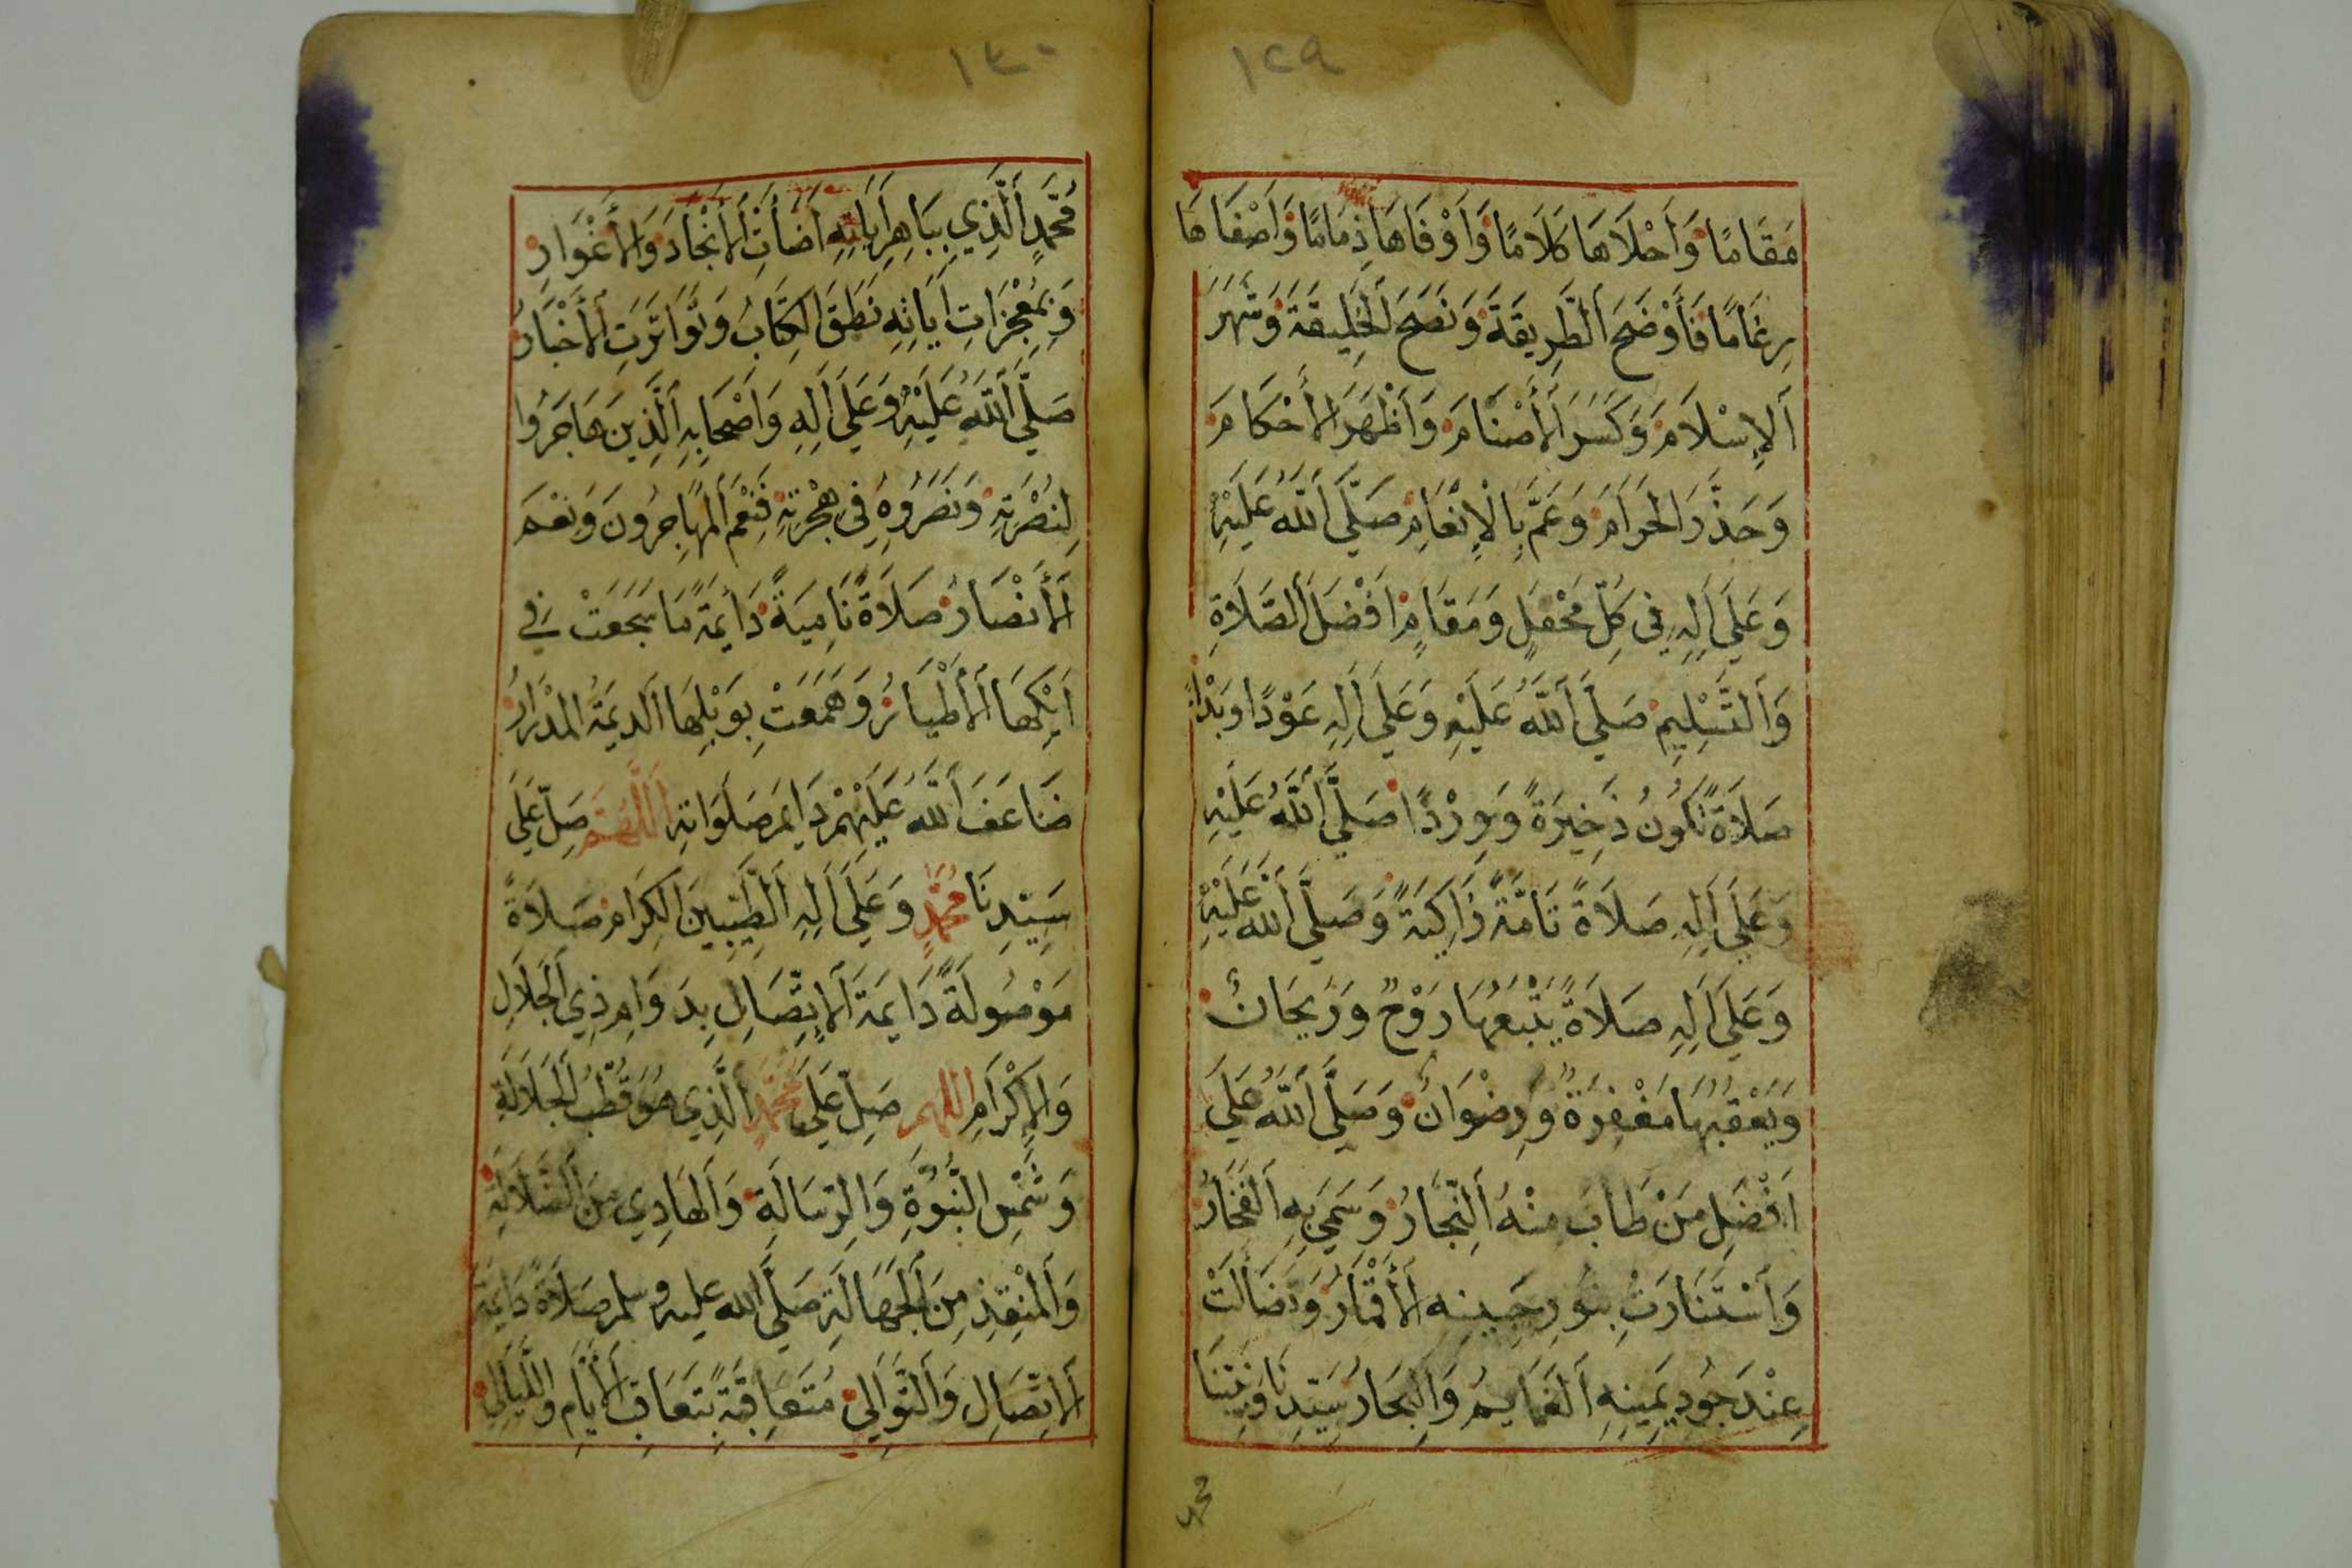 ١٢٩
مَقَامًا وَأَحْلَاهَا كَلَامًا وَأَوْفَاهَا ذِمَامًا وَأَصْفَاهَا
رِغَامًا فَأَوْضَحَ الطَّرِيقَةَ وَنَصَحَ الْخَلِيقَةَ وَشَهَرَ
الإِسْلَامَ وَكَسَرَ الأَصْنَامَ وَأَظْهَرَ الأَحْكَامَ
وَحَذَّرَ الحَرَامَ وَعَمَّ بِالْإِنْعَامِ صَلَّى اللهُ عَلَيْهِ
وَعَلَى آلِهِ فِي كُلِّ مَحْفَلٍ وَمَقَامٍ أَفْضَلَ الصَّلَاةِ
وَالتَّسْلِيمِ صَلَّى اللهُ عَلَيْهِ وَعَلَى آلِهِ عَوْدًا وَبَدْأً
صَلَاةً تَكُونُ ذَخِيرَةً وَوِرْدًا صَلَّى اللهُ عَلَيْهِ
وَعَلَى آلِهِ صَلَاةً تَامَّةً زَاكِيَةً وَصَلَّى اللهُ عَلَيْهِ
وَعَلَى آلِهِ صَلَاةً يَتْبَعُهَا رَوْحٌ وَرَيْحَانٌ
وَيَعْقُبُهَا مَغْفِرَةٌ وَرِضْوَانٌ وَصَلَّى اللهُ عَلَى
أَفْضَلِ مَنْ طَابَ مِنْهُ النِّجَارُ وَسَمَى بِهِ الفَخَارُ
وَاسْتَنَارَتْ بِنُورِ جَبِينِهِ الأَقْمَارُ وَتَضَاءَلَتْ
عِنْدَ جُودِ يَمِينِهِ الغَمَايِمُ وَالبِحَارُ سَيِّدِنَا وَنَبِيِّنَا
محمد
١٣٠
مُحَمَّدٍ الَّذِي بِبَاهِرِ آيَاتِهِ أَضَأَتِ الأَنْجَادَ وَالأَغْوَارِ
وَبِمُعْجِزَاتِ آيَاتِهِ نَطَقَ الكِتَابُ وَتَوَاتَرَتِ الأَخْبَارُ
صَلَّى اللهُ عَلَيْهِ وَعَلَى آلِهِ وَأَصْحَابِهِ الَّذِينَ هَاجَرُوا
لِنُصْرَتِهِ وَنَصَرُوهُ فِي هِجْرَتِهِ فَنِعْمَ المُهَاجِرُونَ وَنِعْمَ
الأَنْصَارُ صَلَاةً نَامِيَةً دَايِمَةً مَا سَجَعَتْ فِي
أَيْكِهَا الأَطْيَارُ وَهَمَعَتْ بِوَبْلِهَا الدِيمَةُ المِدْرَارُ
ضَاعَفَ اللهُ عَلَيْهِمْ دَايِمَ صَلَوَاتِهِ اللَّهُمَّ صَلِّ عَلَى
سَيِّدِنَا مُحَمَّدٍ وَعَلَى آلِهِ الطَّيِّبِينَ الكِرَامِ صَلَاةً
مَوْصُولَةً دَايِمَةَ الإِتِّصَالِ بِدَوَامِ ذِي الجَلَالِ
وَالإِكْرَامِ اللهم صَلِّ عَلَى مُحَمَّدٍ الَّذِي هُوَ قُطْبُ الجَلَالَةِ
وَشَمْسِ النُّبُوَّةِ وَالرِّسَالَةِ وَالهَادِي مِنَ الضَّلَالَةِ
وَالمُنْقِذِ مِنَ الجَهَالَةِ صَلَّى الله عليه وسلم صَلَاةً دَايِمَةَ
الاتِّصَالِ وَالتَّوَالِي مُتَعَاقِبَةً بِتَعَاقِبِ الأَيَّامِ وَاللَّيَالِي